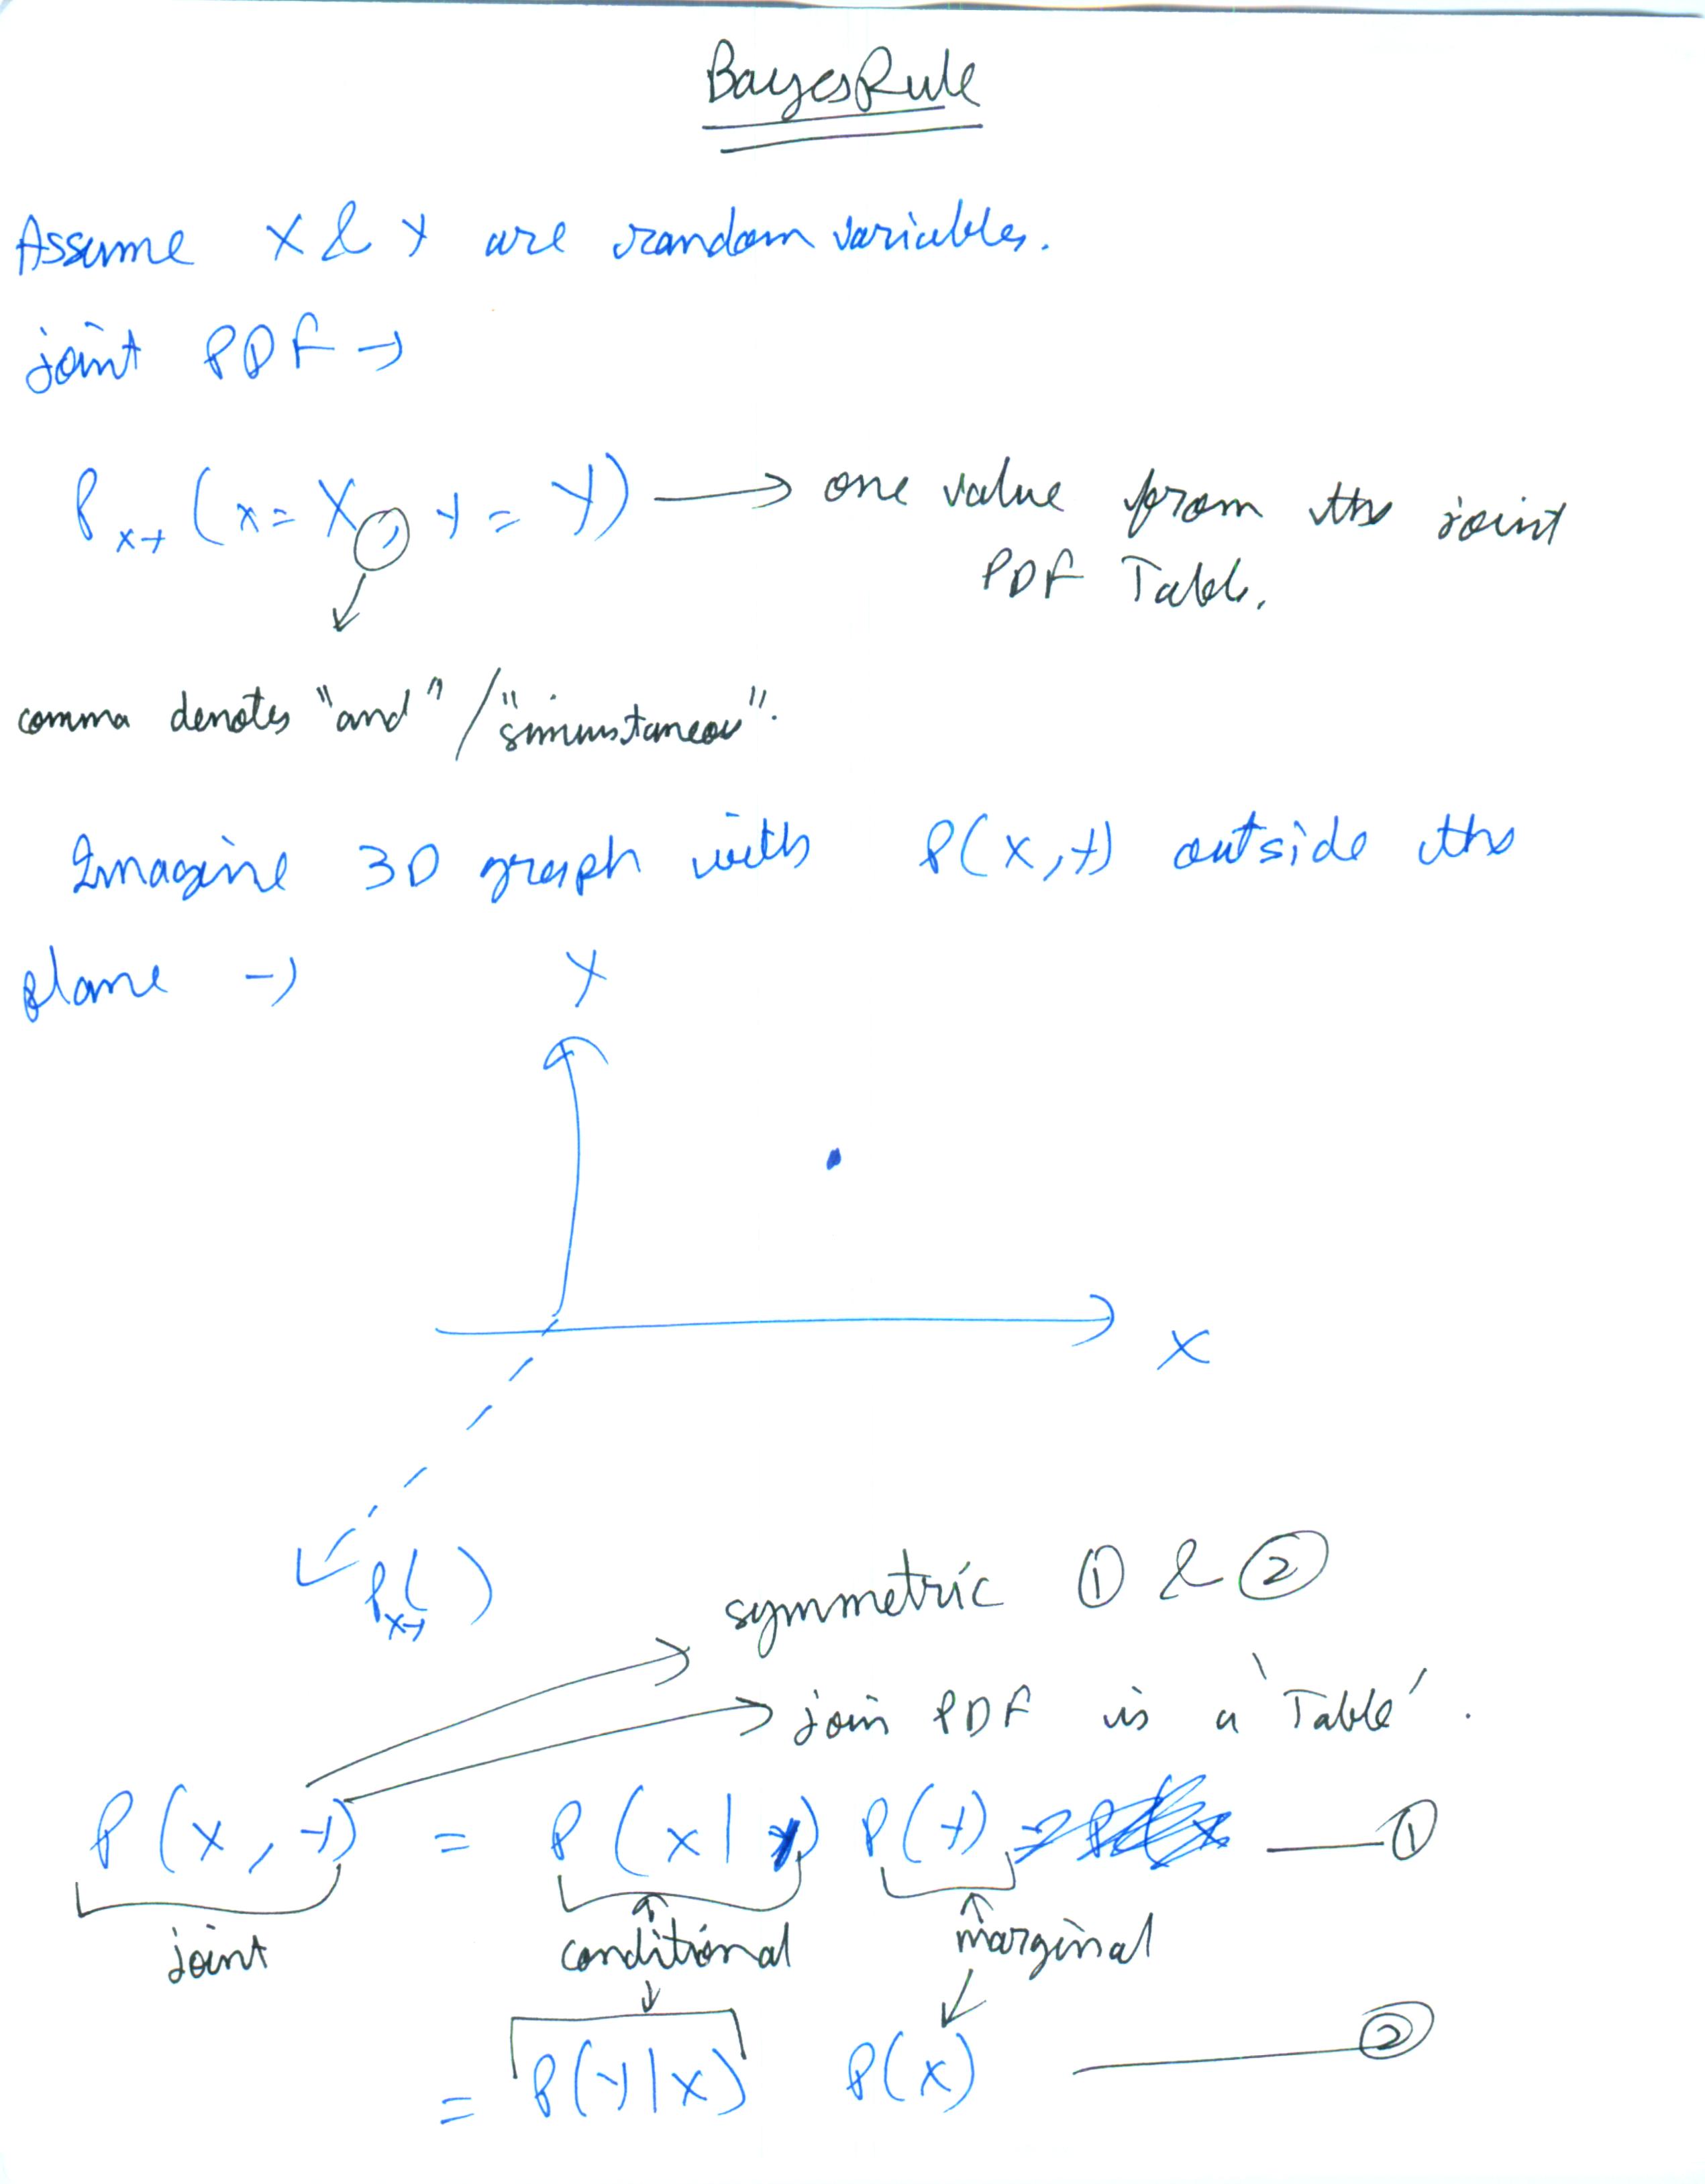 Bayes Rule
Assume X & Y are random variables.
joint PDF →
P_XY (x = X, y = Y) → one value from the joint
PDF Table.
comma denotes "and" / "simunstaneou".
Imagine 3D graph with P(X,Y) outside the
plane →
Y
X
P_XY( )
symmetric ① & ②
join PDF is a 'Table'.
P(X,Y) = P(X|Y) P(Y) — ①
joint conditional marginal
= P(Y|X) P(X) — ②